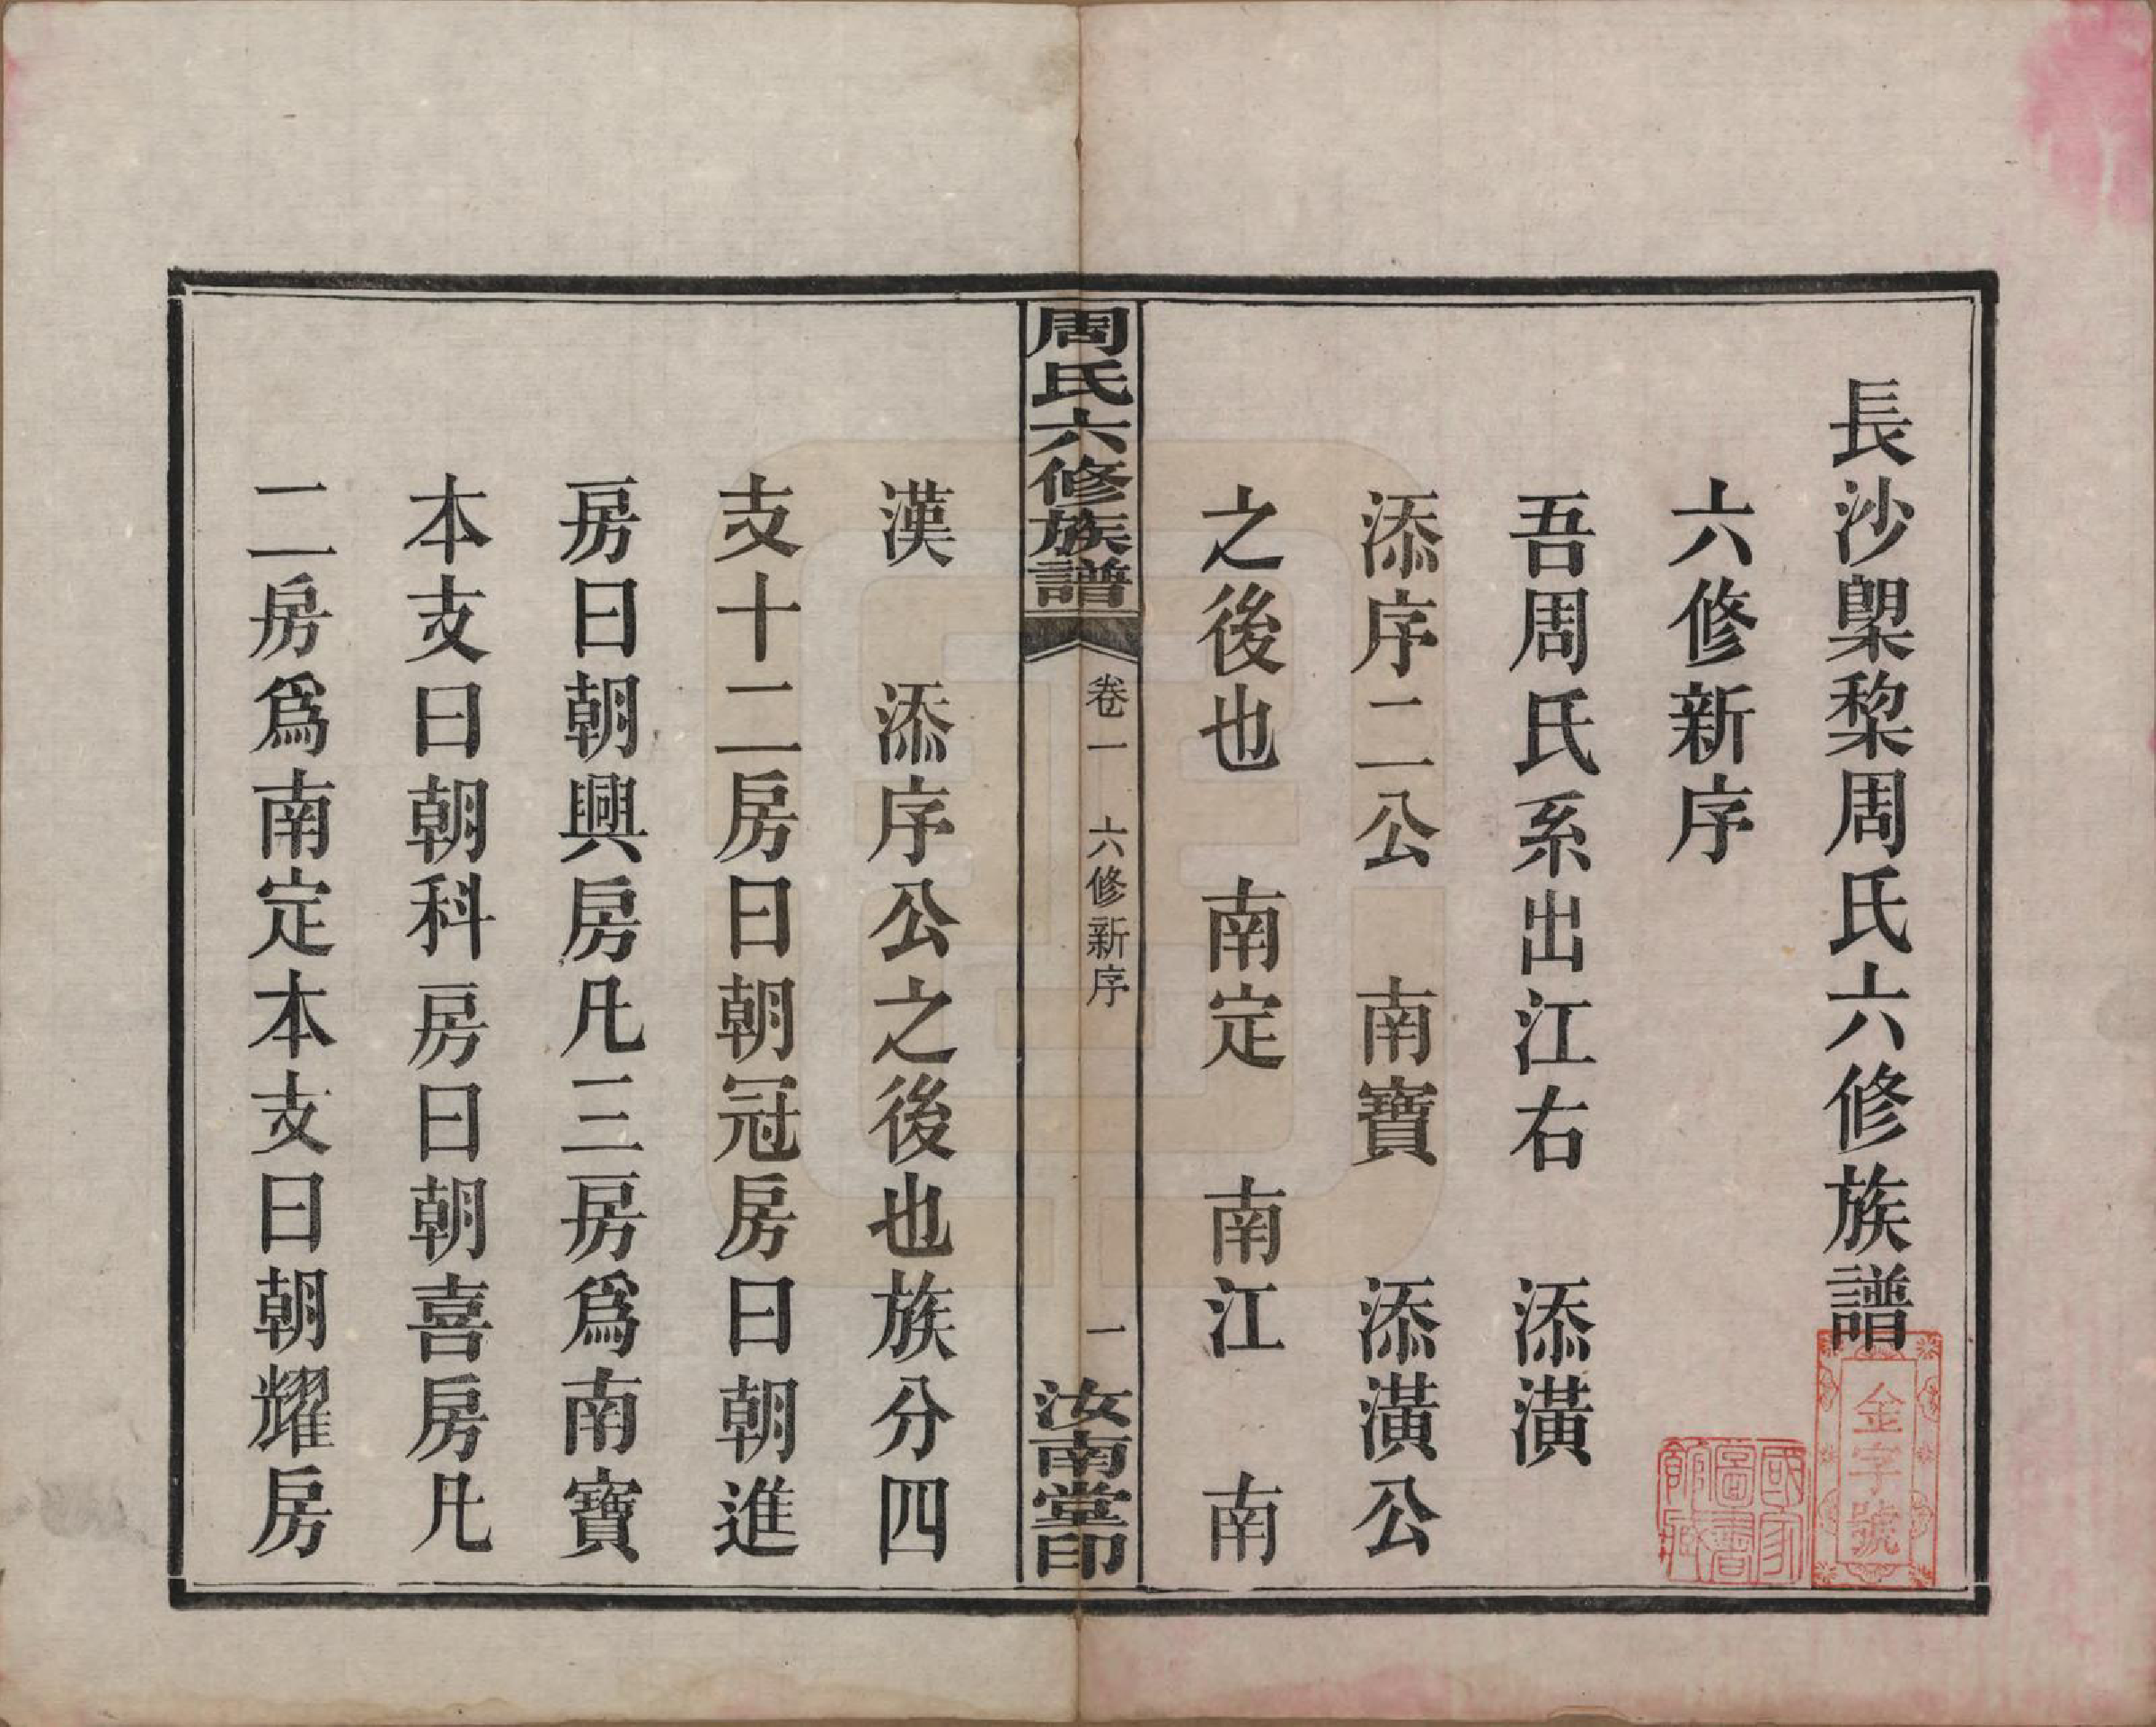 長沙㮚棃周氏六修族譜
六修新序
吾周氏系出江右　添潢
添序二公　南寶　添潢公
之後也　南定　南江　南
周氏六修族譜
卷一　六修新序
一
汝南堂印
漢　添序公之後也族分四
支十二房曰朝冠房曰朝進
房曰朝興房凡三房爲南寶
本支曰朝科房曰朝喜房凡
二房爲南定本支曰朝耀房
金字號
國家圖書館藏